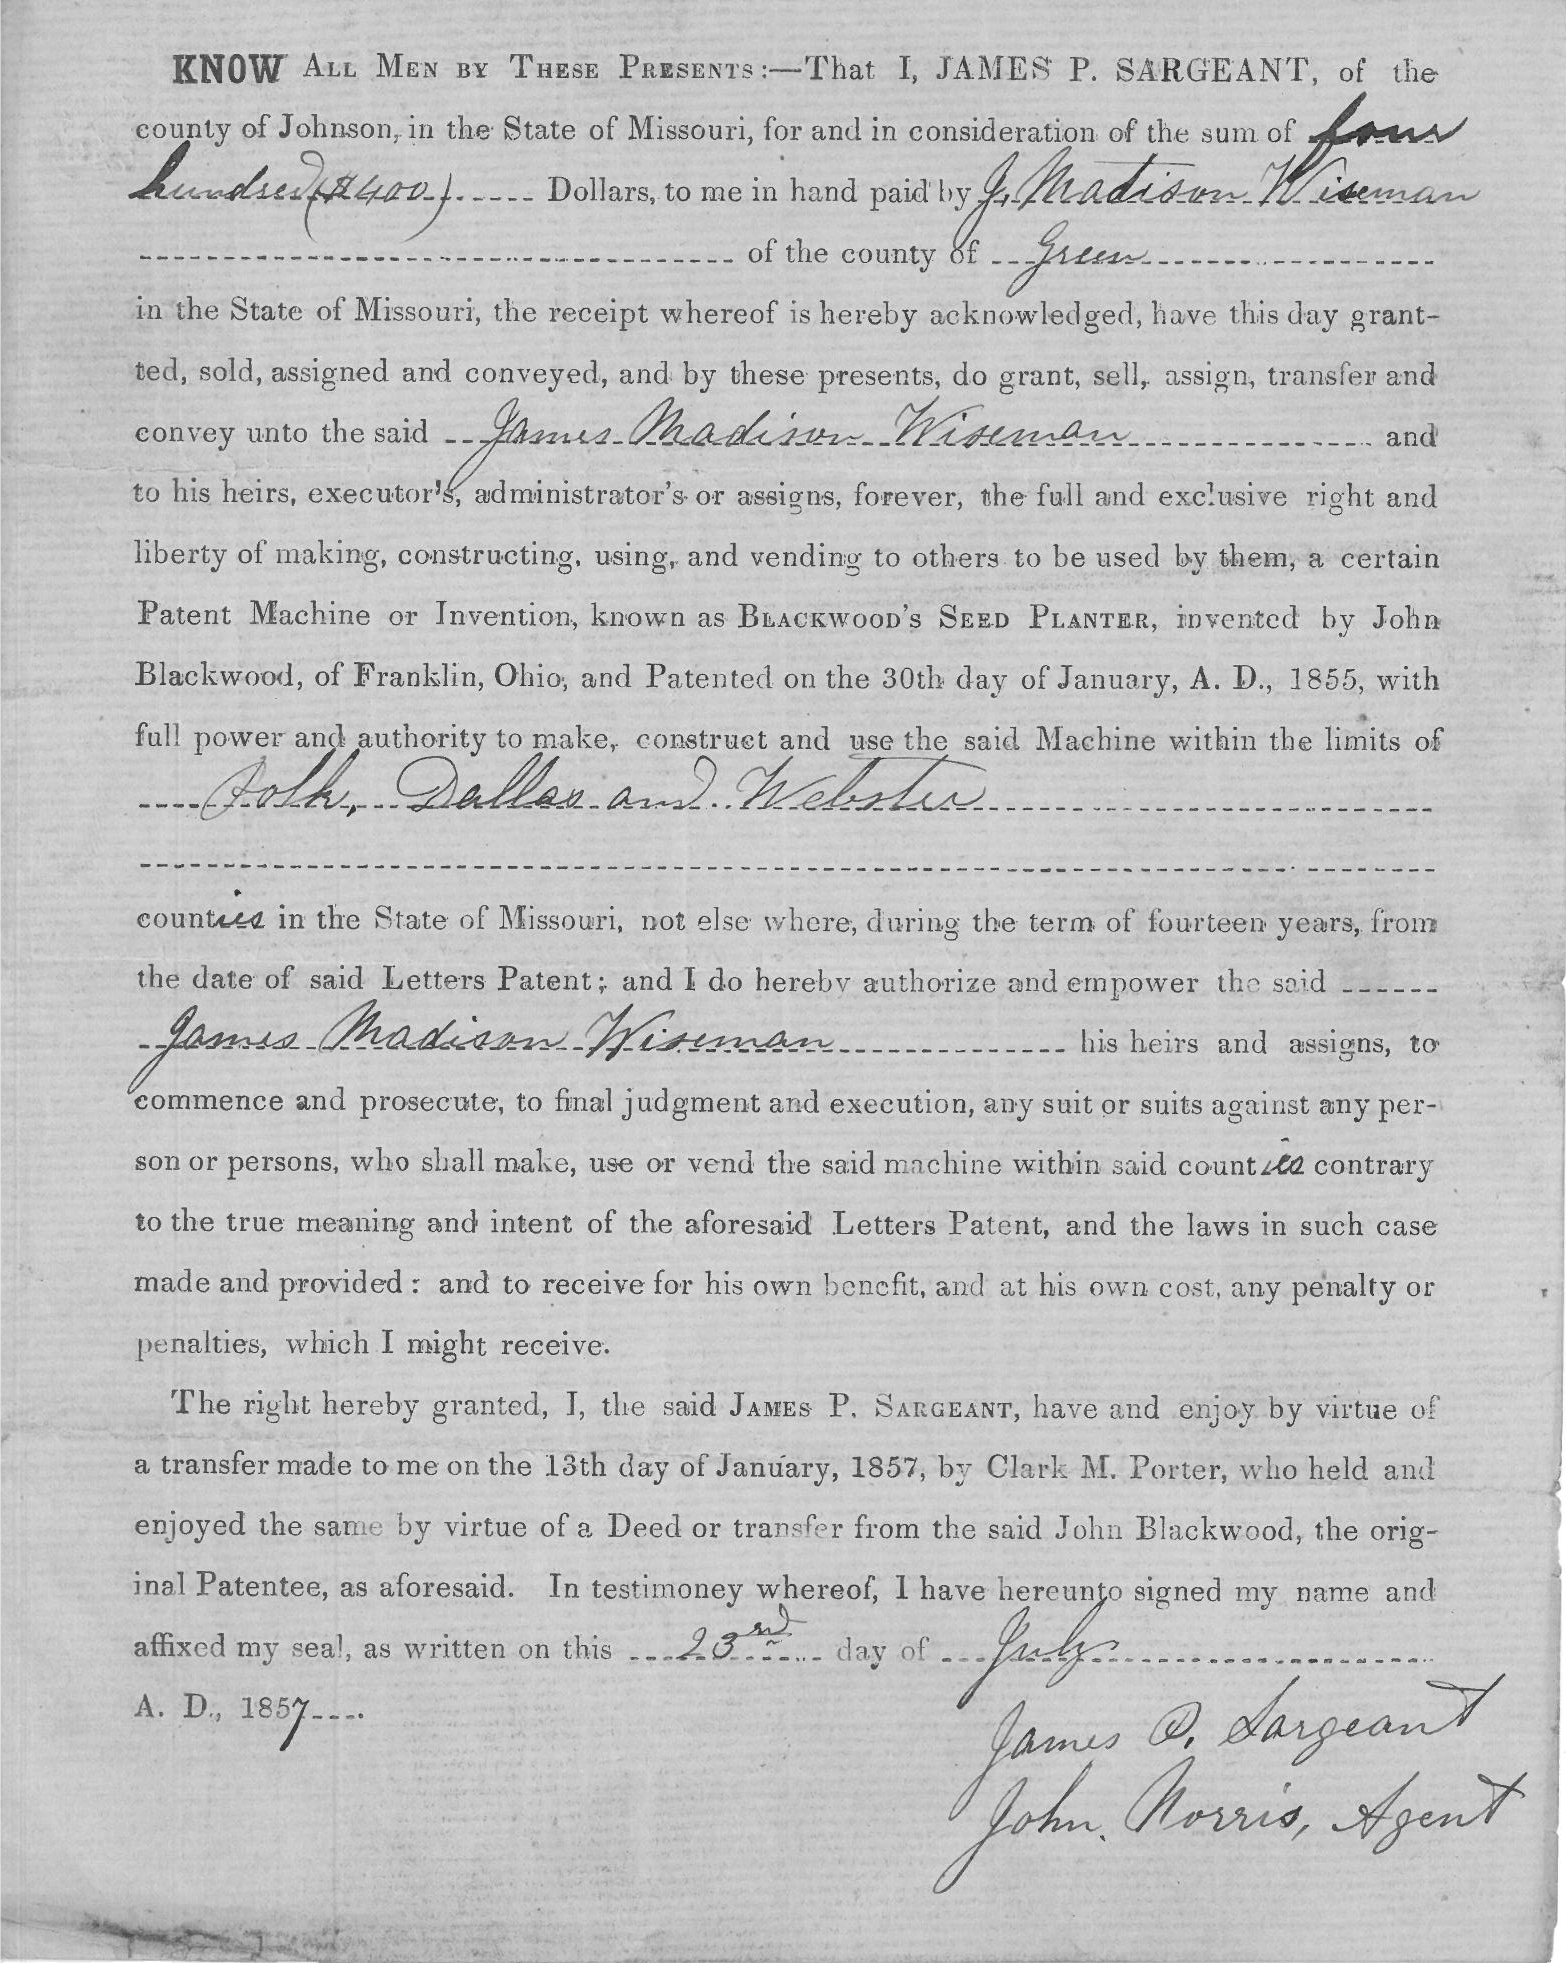 KNOW ALL MEN BY THESE PRESENTS:—That I, JAMES P. SARGEANT, of the
county of Johnson, in the State of Missouri, for and in consideration of the sum of four
hundred ($400) Dollars, to me in hand paid by J. Madison Wiseman
of the county of Green
in the State of Missouri, the receipt whereof is hereby acknowledged, have this day grant-
ted, sold, assigned and conveyed, and by these presents, do grant, sell, assign, transfer and
convey unto the said James Madison Wiseman and
to his heirs, executor's, administrator's or assigns, forever, the full and exclusive right and
liberty of making, constructing, using, and vending to others to be used by them, a certain
Patent Machine or Invention, known as BLACKWOOD'S SEED PLANTER, invented by John
Blackwood, of Franklin, Ohio, and Patented on the 30th day of January, A. D., 1855, with
full power and authority to make, construct and use the said Machine within the limits of
Polk, Dallas and Webster
counties in the State of Missouri, not else where, during the term of fourteen years, from
the date of said Letters Patent; and I do hereby authorize and empower the said
James Madison Wiseman his heirs and assigns, to
commence and prosecute, to final judgment and execution, any suit or suits against any per-
son or persons, who shall make, use or vend the said machine within said counties contrary
to the true meaning and intent of the aforesaid Letters Patent, and the laws in such case
made and provided: and to receive for his own benefit, and at his own cost, any penalty or
penalties, which I might receive.
The right hereby granted, I, the said JAMES P. SARGEANT, have and enjoy by virtue of
a transfer made to me on the 13th day of January, 1857, by Clark M. Porter, who held and
enjoyed the same by virtue of a Deed or transfer from the said John Blackwood, the orig-
inal Patentee, as aforesaid. In testimoney whereof, I have hereunto signed my name and
affixed my seal, as written on this 23rd day of July
A. D., 1857
James P. Sargeant
John Norris, Agent